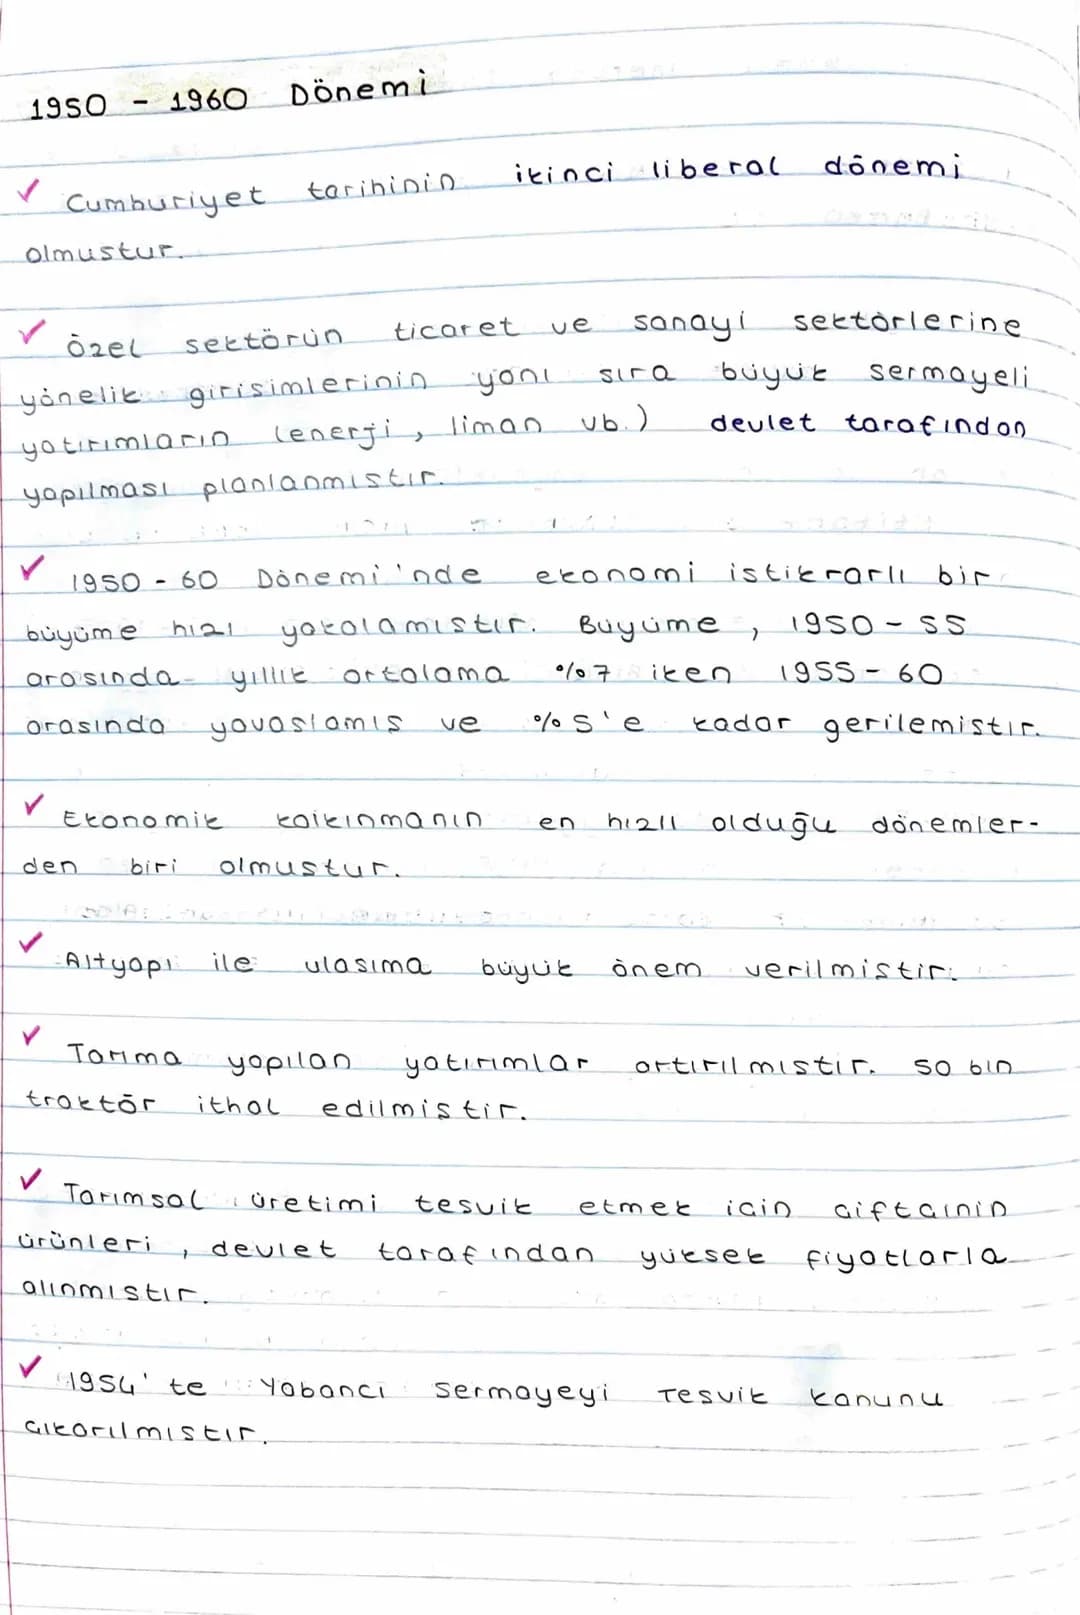 1950 - 1960 Dönemi
✓ Cumhuriyet tarihinin ikinci liberal dönemi
olmustur.
✓ Özel sektörün ticaret ve sanayi sektörlerine
yönelik girisimlerinin yanı sıra büyük sermayeli
yatırımların (enerji, liman vb.) devlet tarafından
yapılması planlanmıstır.
✓ 1950 - 60 Dönemi'nde ekonomi istikrarlı bir
büyüme hızı yakalamıstır. Büyüme, 1950 - 55
arasında yıllık ortalama %7 iken 1955 - 60
arasında yavaslamıs ve %5'e kadar gerilemistir.
✓ Ekonomik kalkınmanın en hızlı olduğu dönemler-
den biri olmustur.
✓ Altyapı ile ulasıma büyük önem verilmistir.
✓ Tarıma yapılan yatırımlar artırılmıstır. 50 bin
traktör ithal edilmistir.
✓ Tarımsal üretimi tesvik etmek icin ciftcinin
ürünleri, devlet tarafından yüksek fiyatlarla
alınmıstır.
✓ 1954' te Yabancı Sermayeyi Tesvik Kanunu
cıkarılmıstır.